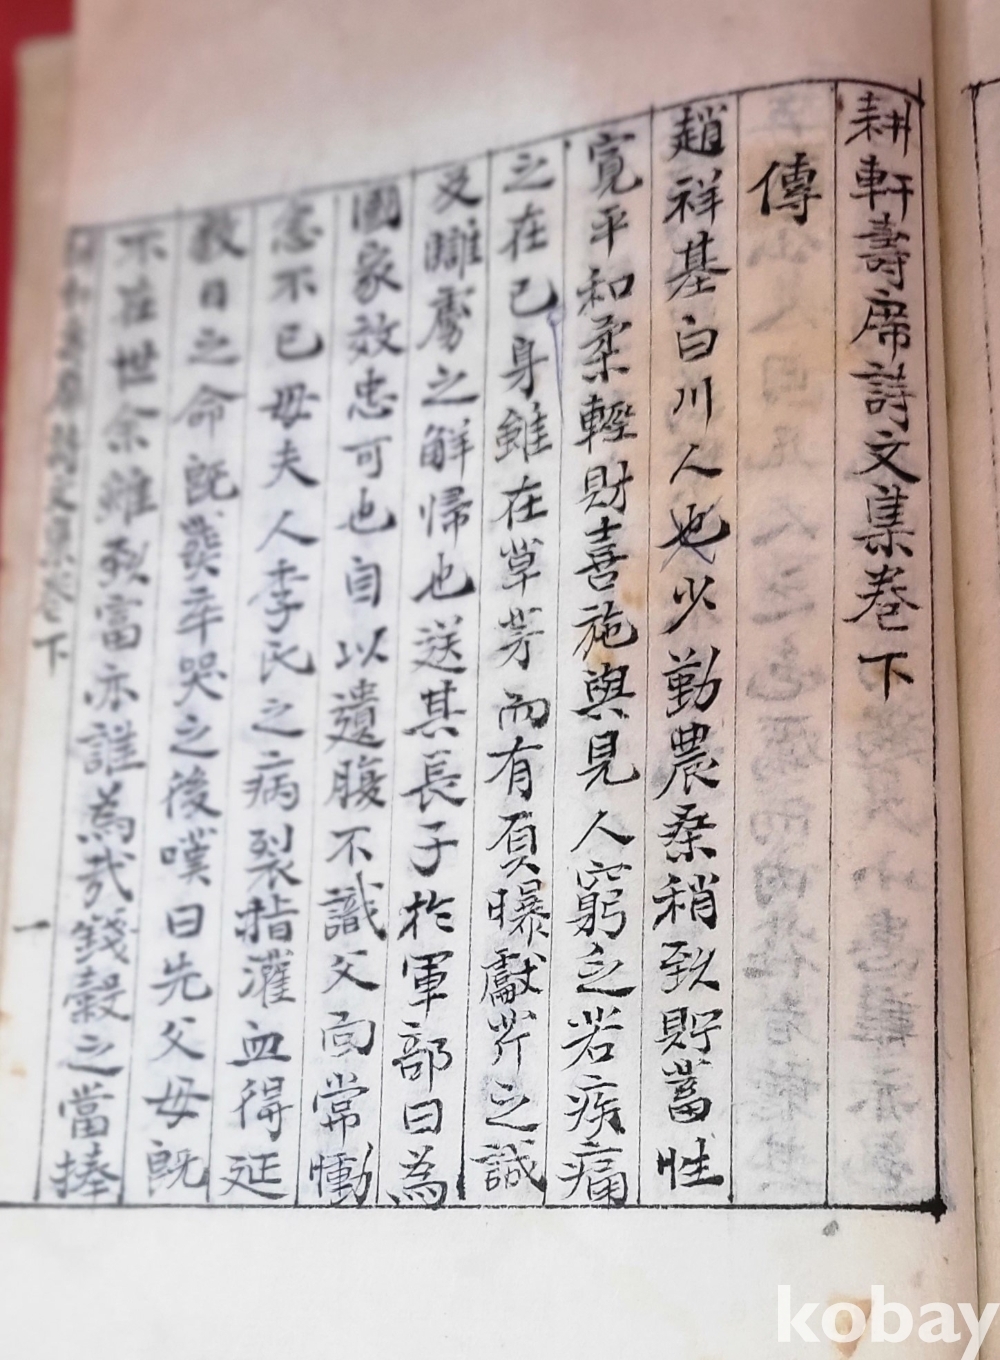 耕軒壽席詩文集卷下
傳
趙祥基白川人也少勤農桑稍致貯蓄性
寬平和柔輕財喜施與見人窮乏若疾痛
之在己身雖在草芥而有負曝獻芹之誠
及雠虜之解歸也送其長子於軍部曰為
國家效忠可也自以遺腹不識父面常慟
念不已母夫人李氏之病裂指灌血得延
數日之命旣卒哭之後嘆曰先父母旣
不在世余雖致富亦誰為哉錢穀之當捧
耕軒壽席詩文集卷下
一
kobay